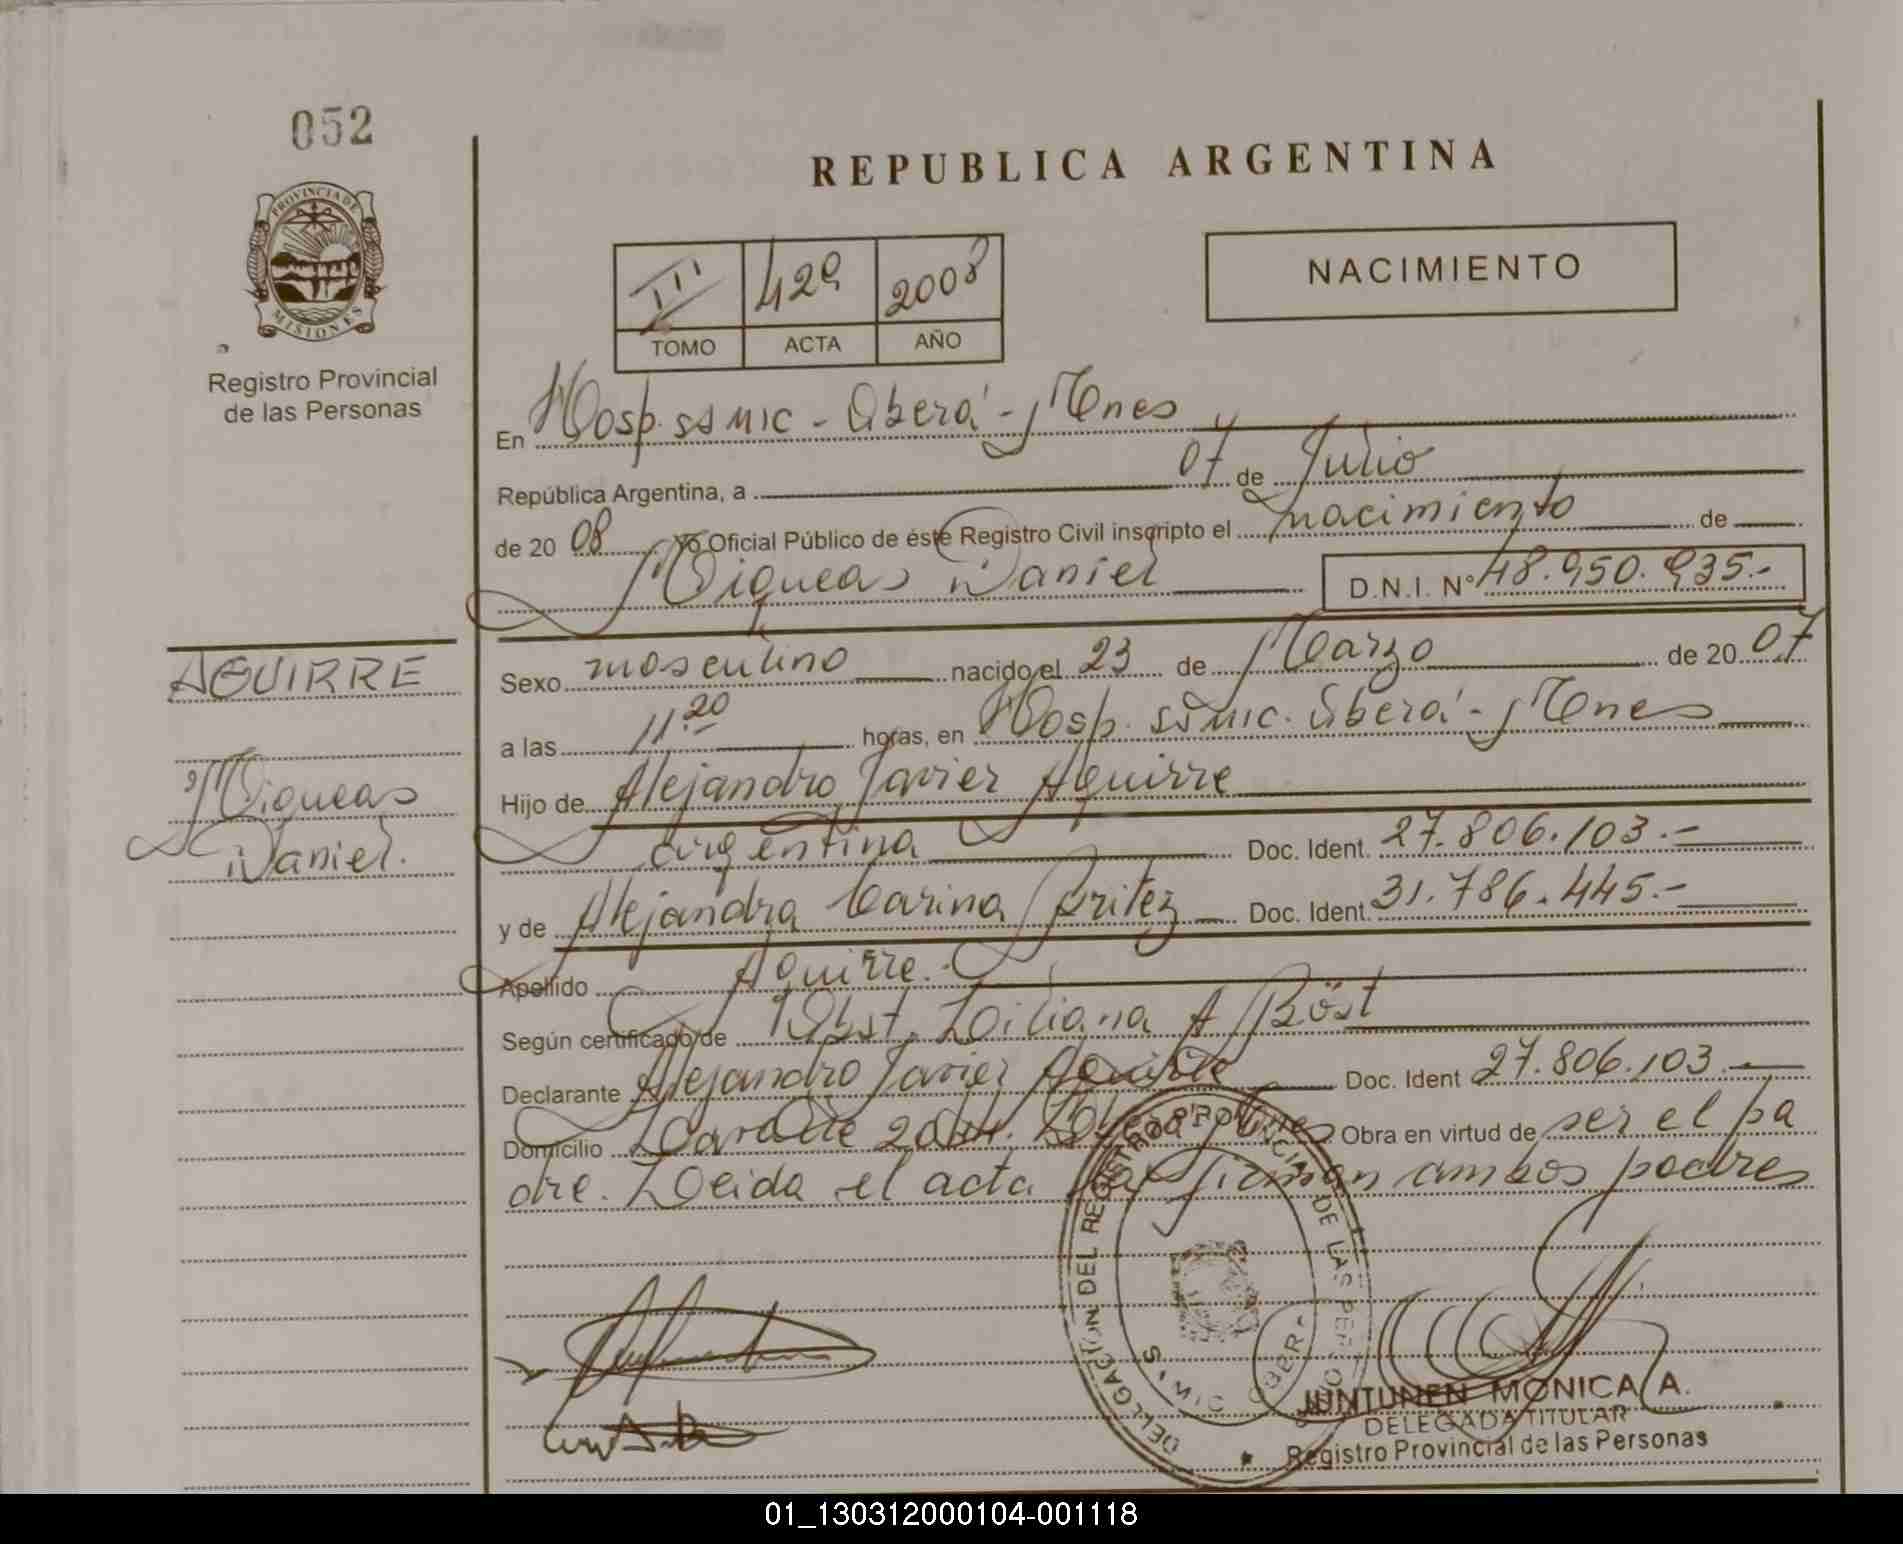 052
REPUBLICA ARGENTINA
PROVINCIA DE
MISIONES
Registro Provincial
de las Personas
III 429 2008
TOMO ACTA AÑO
NACIMIENTO
En Hosp. SAMIC - Oberá - Mnes
República Argentina, a 07 de Julio
de 20 08 Yo Oficial Público de éste Registro Civil inscripto el nacimiento de
Miqueas Daniel D.N.I. Nº 48.950.935.-
AGUIRRE
Miqueas
Daniel.
Sexo masculino nacido el 23 de Marzo de 20 07
a las 11 20 horas, en Hosp. SAMIC. Oberá - Mnes
Hijo de Alejandro Javier Aguirre
argentina Doc. Ident. 27.806.103.-
y de Alejandra Carina Britez Doc. Ident. 31.786.445.-
Apellido Aguirre.-
Según certificado de Obst. Liliana A Böst
Declarante Alejandro Javier Aguirre Doc. Ident 27.806.103.-
Domicilio Obra en virtud de ser el pa
dre. Leida el acta la firman ambos padres
DELEGACIÓN DEL REGISTRO PROVINCIAL DE LAS PERSONAS
JUNTUNEN MONICA A.
DELEGADA TITULAR
Registro Provincial de las Personas
01_130312000104-001118